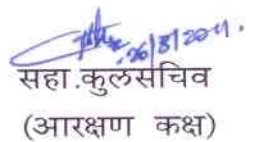 26/8/2011.
सहा.कुलसचिव
(आरक्षण कक्ष)